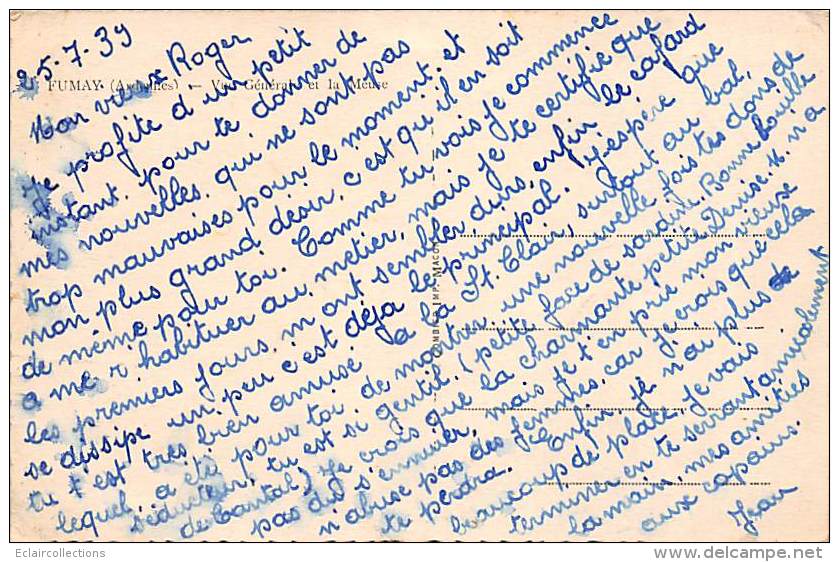 25.7.39
FUMAY (Ardennes) — Vue Générale et la Meuse
Mon vieux Roger
Je profite d'un petit
instant pour te donner de
mes nouvelles qui ne sont pas
trop mauvaises pour le moment et
mon plus grand désir, c'est qu'il en soit
de même pour toi. Comme tu vois je commence
a me r'habituer au métier, mais je te certifie que
les premiers jours m'ont sembler durs, enfin le cafard
se dissipe un peu c'est déja le principal. J'espère que
tu t'est très bien amusé a la St. Clair, surtout au bal,
lequel a été pour toi de montrer une nouvelle fois tes dons de
séducteur, tu est si gentil, (petite face de sardine, Bonne bouille
de Cantal) Je crois que la charmante petite Denise. M. n'a
pas dû s'ennuier, mais je t'en prie mon vieux
n'abuse pas des femmes, car je crois que cela
te perdra. Enfin, je n'ai plus de
beaucoup de place, je vais
terminer en te serrant amicalement
la main, mes amitiés
aux copains.
Jean
COMBIER IMP. MACON
Eclaircollections
www.delcampe.net